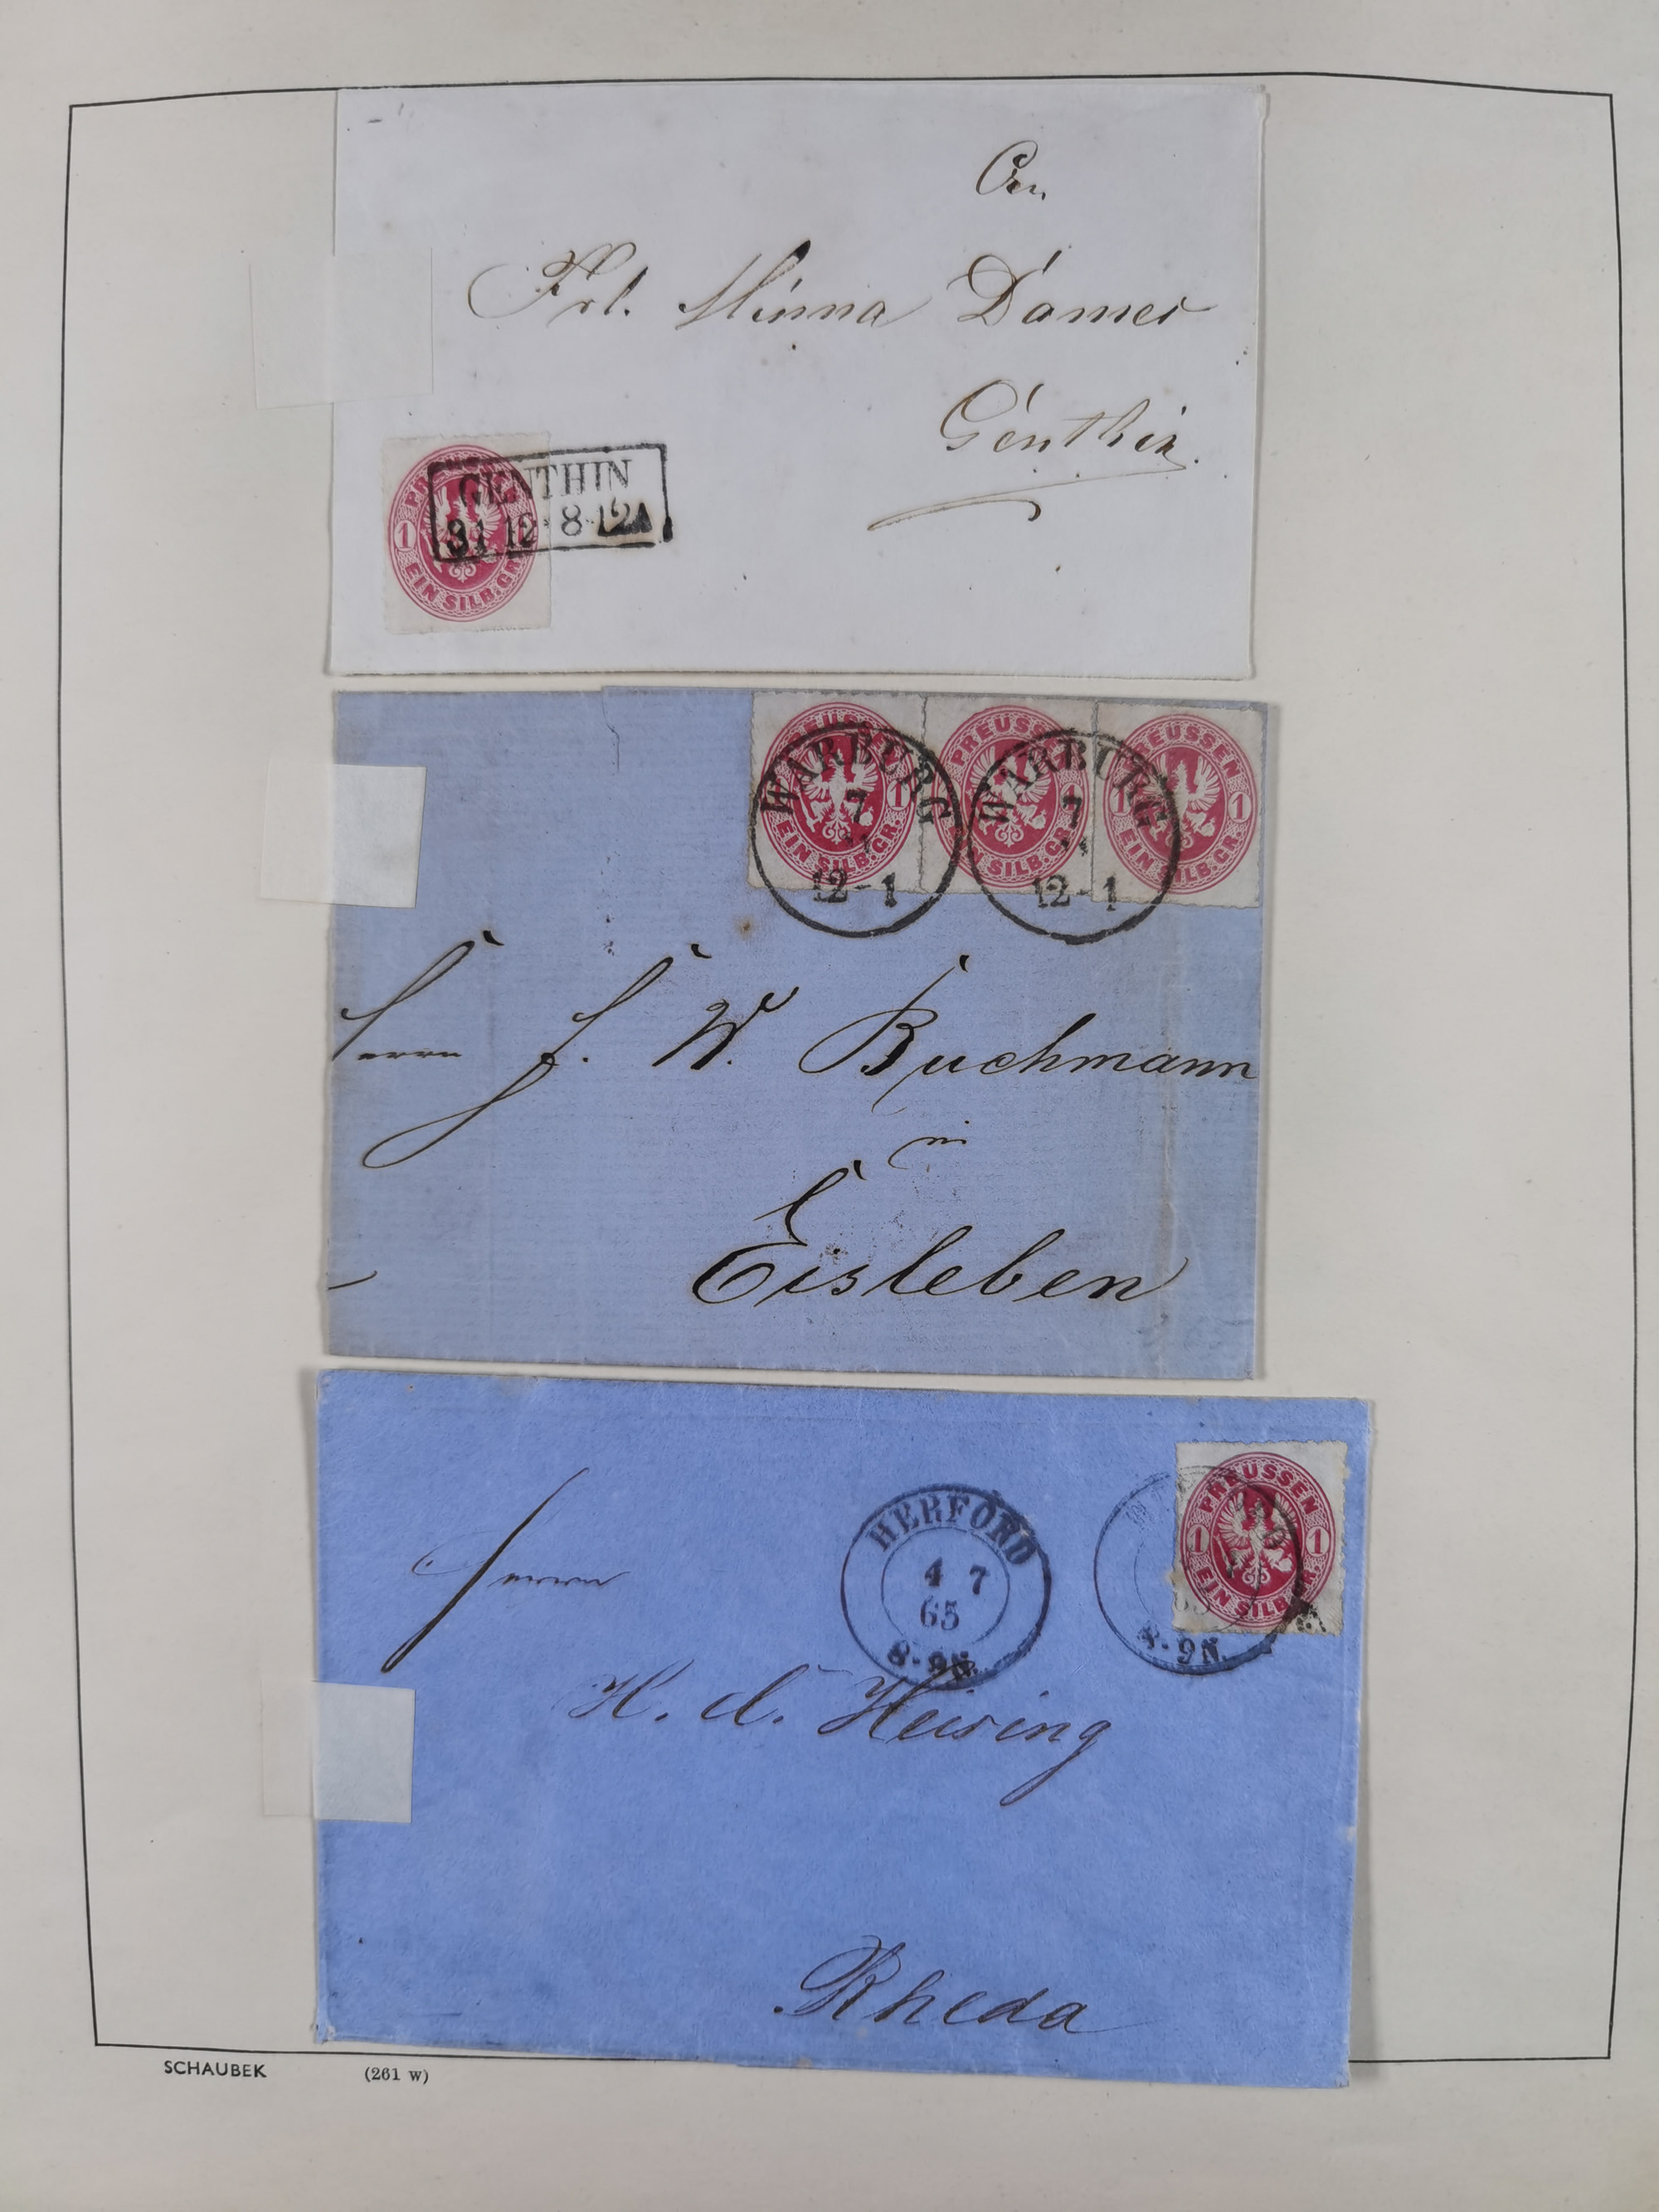 An
Frl. Minna Damer
Genthin.
PREUSSEN
1
EIN SILB.GR.
GENTHIN
31 12 8-12
PREUSSEN
1
EIN SILB.GR.
PREUSSEN
1
EIN SILB.GR.
PREUSSEN
1 1
EIN SILB.GR.
WARBURG
7
12-1
WARBURG
7
12-1
Herrn F. W. Buchmann
in
Eisleben
PREUSSEN
1 1
EIN SILB.GR.
HERFORD
4 7
65
8-9N.
HERFORD
65
8-9N.
Herrn
H. A. Heising
Rheda
SCHAUBEK (261 w)